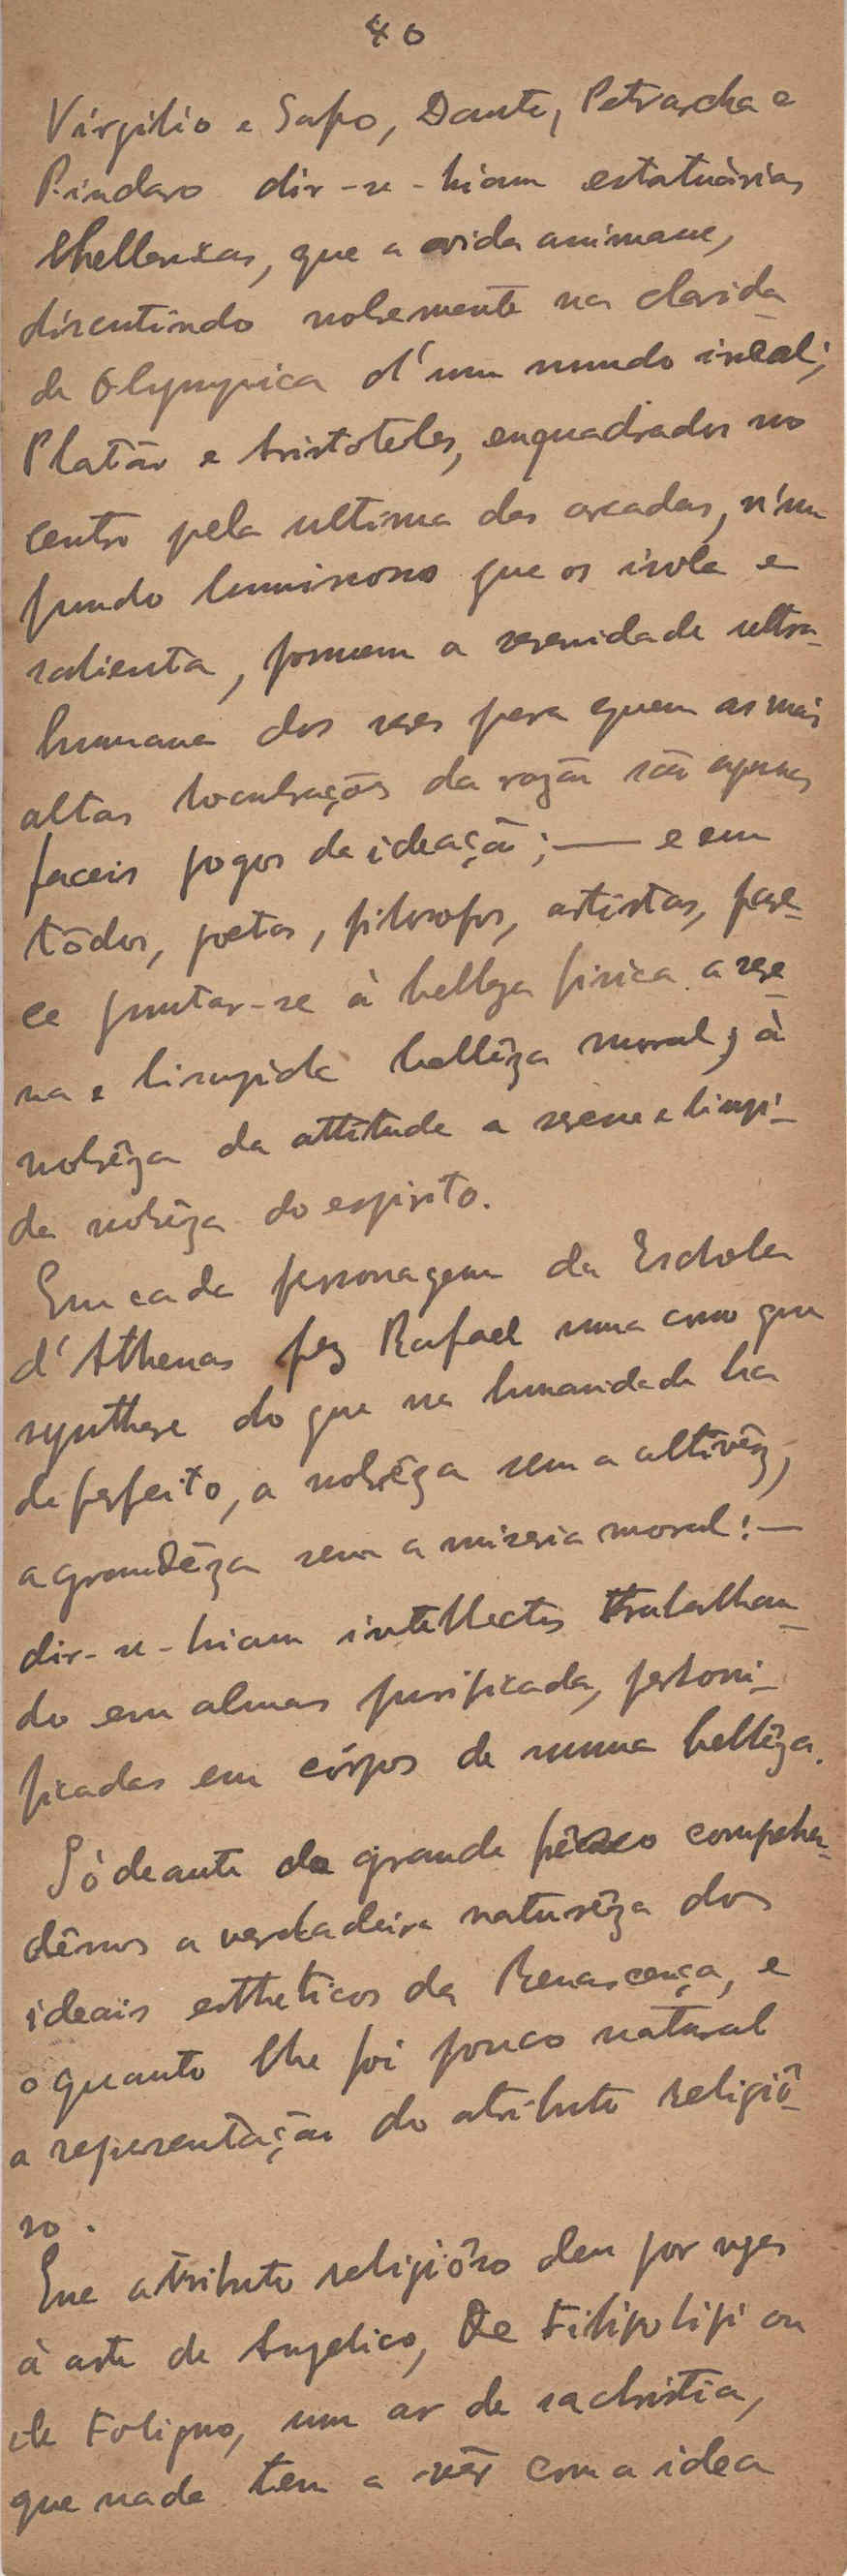 40
Virgilio e Safo, Dante, Petrarcha e
Pindaro dir-se-hiam estatuárias
hellenicas, que a vida animasse,
discutindo nobremente na clarida
de Olympica d'um mundo irreal;
Platão e Aristoteles, enquadrados no
centro pela ultima das arcadas, n'um
fundo luminoso que os isola e
salienta, possuem a serenidade ultra-
humana dos seres para quem as mais
altas locubrações da razão são apenas
faceis jogos de ideação; — e em
tôdos, poetas, filosofos, artistas, pare-
ce juntar-se á belleza fisica a sere-
na e limpida bellêza moral, à
nobrêza da attitude a serena e limpi-
da nobrêza do espirito.
Em cada personagem da Eschola
d'Athenas fez Rafael uma como que
synthese do que na humanidade ha
de perfeito, a nobrêza sem a altivêz,
a grandêza sem a miseria moral: —
dir-se-hiam intellectos trabalhan-
do em almas purificadas, personi-
ficadas em córpos de summa bellêza.
Só deante do grande frêsco comprehen-
dêmos a verdadeira naturêza dos
ideais estheticos da Renascença, e
o quanto lhe foi pouco natural
a representação do atributo religiô-
so.
Esse atributo religiôso deu por vezes
à arte de Angelico, de Filipo Lipi ou
de Foligno, um ar de sachristia,
que nada tem a vêr com a idea